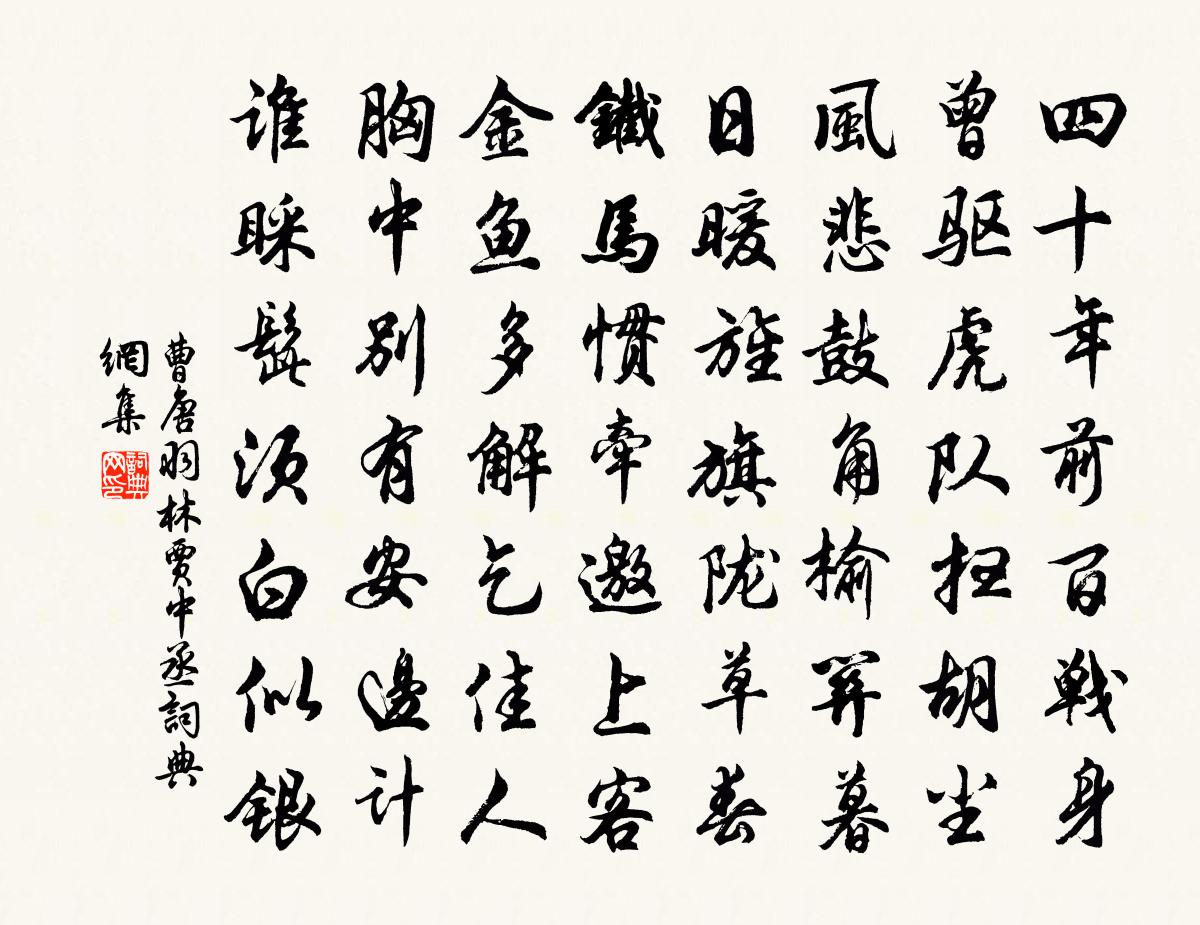 四十年前百戦身
曾驱虎队扫胡尘
風悲鼓角榆関暮
日暖旌旗陇草春
鐵馬惯牵邀上客
金鱼多解乞佳人
胸中别有安邊计
谁睬髭须白似銀
曹唐羽林賈中丞詞典
網集
詞典
网印